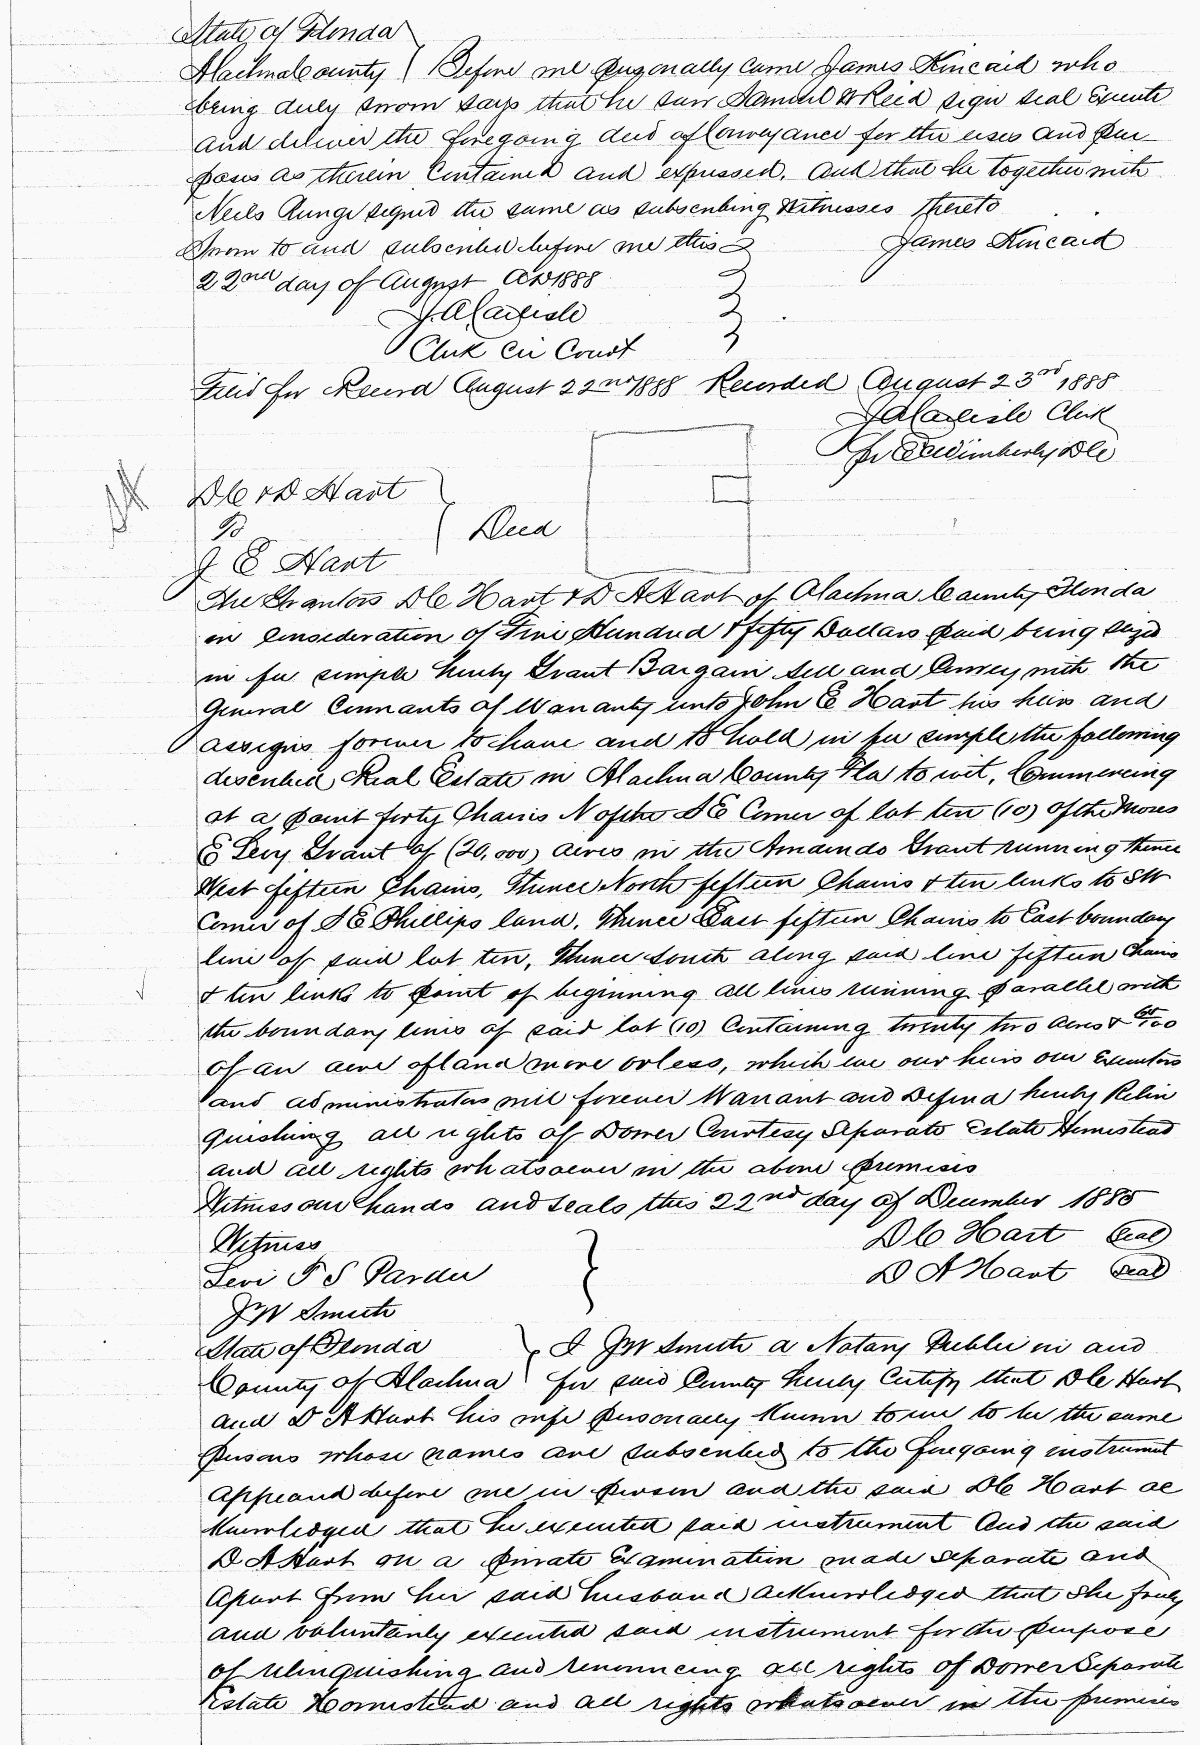 State of Florida
Alachua County Before me personally came James Kincaid who
being duly sworn says that he saw Samuel W Reid sign seal Execute
and deliver the foregoing deed of Conveyance for the uses and pur-
poses as therein Contained and expressed. And that he together with
Neils Runge signed the same as subscribing Witnesses thereto
Sworn to and subscribed before me this James Kincaid
22nd day of August AD 1888
J A Carlisle
Clerk Cir Court
Filed for Record August 22nd 1888 Recorded August 23rd 1888
J A Carlisle Clerk
pr Wimberly DC
D C & D Hart
To Deed
J E Hart
The Grantors D C Hart & D A Hart of Alachua County Florida
in Consideration of Five Hundred & fifty Dollars paid being seized
in fee simple hereby Grant Bargain Sell and Convey with the
General Covenants of Warranty unto John E Hart his heirs and
assigns forever to have and to hold in fee simple the following
described Real Estate in Alachua County Fla to wit, Commencing
at a point forty Chains N of the SE Corner of lot ten (10) of the Moses
E Levy Grant of (20,000) acres in the Arredondo Grant running thence
West fifteen Chains, Thence North fifteen Chains & ten links to SW
Corner of S E Phillips land. Thence East fifteen Chains to East boundary
line of said lot ten, Thence South along said line fifteen Chains
& ten links to point of beginning all lines running parallel with
the boundary lines of said lot (10) Containing twenty two acres &
of an acre of land more or less, which we our heirs our Executors
and administrators will forever Warrant and Defend hereby Relin
quishing all rights of Dower Courtesy Separate Estate Homestead
and all rights whatsoever in the above premises
Witness our hands and seals this 22nd day of December 1885
Witness D C Hart Seal
Levi T S Pardee D A Hart Seal
J W Smith
State of Florida I J W Smith a Notary Public in and
County of Alachua for said County hereby Certify that D C Hart
and D A Hart his wife personally Known to me to be the same
persons whose names are subscribed to the foregoing instrument
appeared before me in person and the said D C Hart ac
knowledged that he executed said instrument And the said
D A Hart on a private Examination made separate and
apart from her said husband acknowledged that she freely
and voluntarily executed said instrument for the purpose
of relinquishing and renouncing all rights of Dower Separate
Estate Homestead and all rights whatsoever in the premises